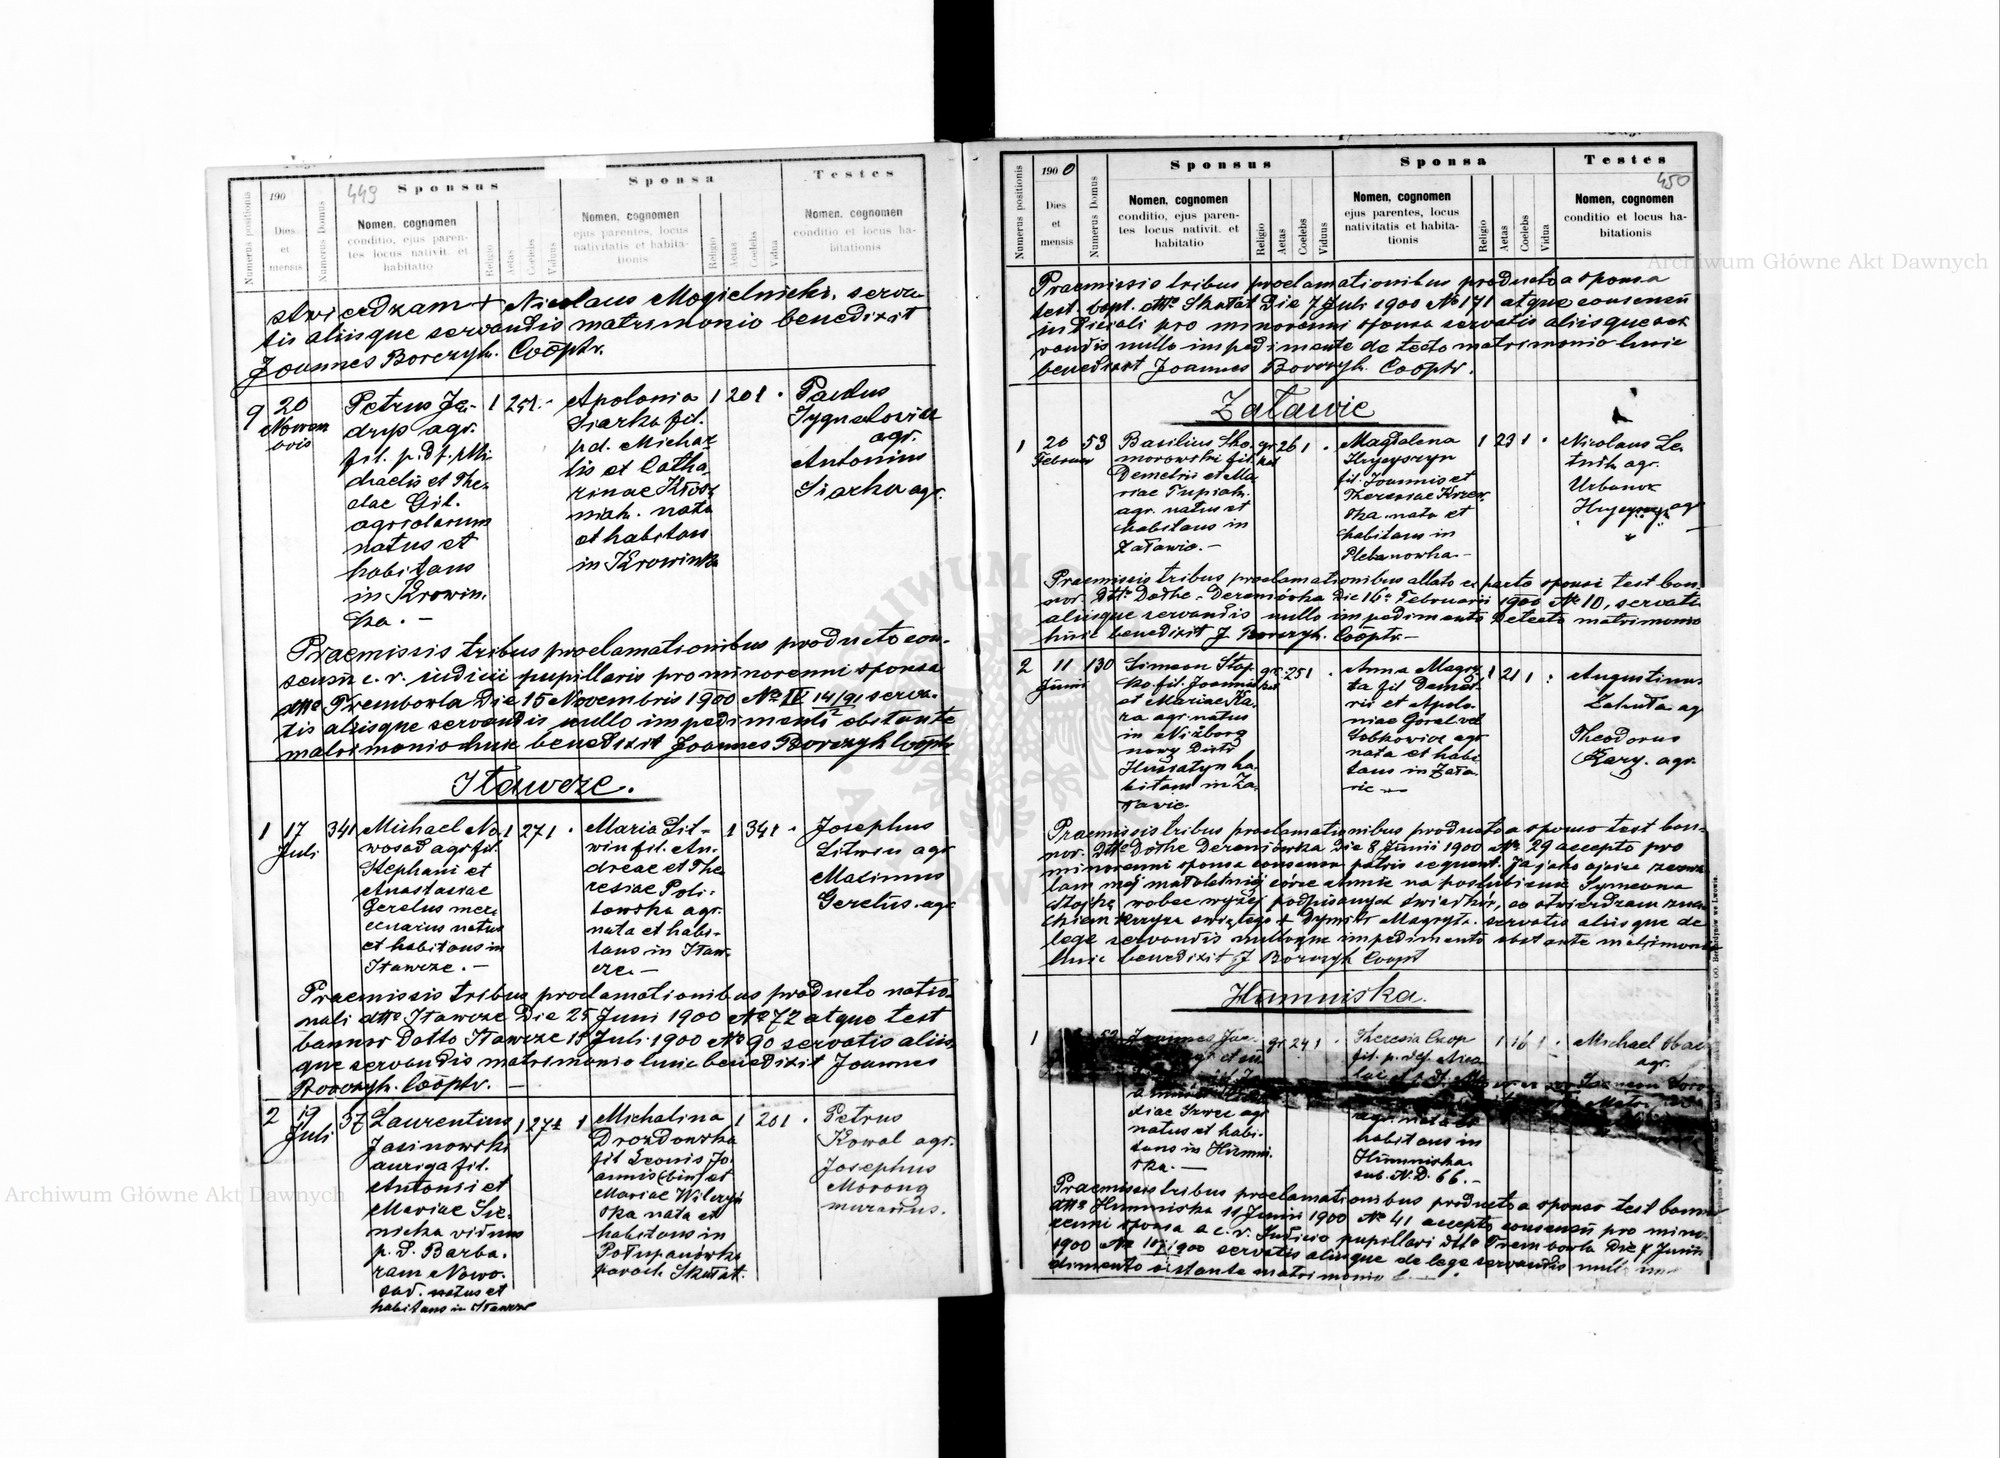 449
190
Sponsus
Sponsa
Testes
Numerus positionis
Dies
et
mensis
Numerus Domus
Nomen, cognomen
conditio, ejus paren-
tes locus nativit. et
habitatio
Religio
Aetas
Coelebs
Viduus
Nomen, cognomen
ejus parentes, locus
nativitatis et habita-
tionis
Religio
Aetas
Coelebs
Vidua
Nomen, cognomen
conditio et locus ha-
bitationis
stwierdzam + Nicolaus Mogielnicki, serva-
tis aliisque servandis matrimonio benedixit
Joannes Borczyk. Cooptr.
9
20
Novem
bris
Petrus Ję-
dryś agr.
fil. p. df. Mi-
chaelis et The-
clae Gil.
agricolarum
natus et
habitans
in Krowin.
ka. —
1
Apolonia
Siarka fil.
pd. Michae
lis et Catha
rinae
nata
et habitans
in Krowinka
1
20
1
Paulus
agr.
Antonius
Siarka agr.
Praemissis tribus proclamationibus producto con-
sensu c. r. iudicii pupillaris pro minorenni sponsa
dtto Trembowla Die 15 Novembris 1900 No IV 14/91 serva-
2
tis aliisque servandis nullo impedimento obstante
matrimonio huic benedixit Joannes Borczyk Cooptr
Iławcze.
1
17
Juli
341
Michael No
wosad agr. fil.
Stephani et
Anastasiae
Gerelus merc
enarius natus
et habitans in
Iławcze. —
1
27
1
Maria Lit-
win fil. An-
dreae et The
resiae Poli-
towska agr.
nata et habi-
tans in Iław-
cze —
1
34
1
Josephus
Litwin agr
Maximus
Gerelus. agr
Praemissis tribus proclamationibus producto natio-
nali dtto Iławcze Die 25 Juni 1900 No 72 atque test
bannor Datto Iławcze 15 Juli 1900 No 90 servatis aliis
que servandis matrimonio huic benedixit Joannes
Borczyk. Cooptr. —
2
19
Juli
37
Laurentius
Jasinowski
auriga fil.
Antonii et
Mariae Sie-
nicka viduus
p. d. Barba-
ram Nowo-
sad. natus et
habitans in Iławcze
1
27
1
Michalina
Drozdowska
fil Leonis Jo
annis (bin) et
Mariae Wilczyń
ska nata et
habitans in
Połupanówka
paroch. Skałat.
1
20
1
Petrus
Kowal agr.
Josephus
Morong
murarius.
450
1900
Sponsus
Sponsa
Testes
Numerus positionis
Dies
et
mensis
Numerus Domus
Nomen, cognomen
conditio, ejus paren-
tes locus nativit. et
habitatio
Religio
Aetas
Coelebs
Viduus
Nomen, cognomen
ejus parentes, locus
nativitatis et habita-
tionis
Religio
Aetas
Coelebs
Vidua
Nomen, cognomen
conditio et locus ha-
bitationis
Praemissis tribus proclamationibus producto a sponsa
test. bapt. dtto Skałat Die 7 Juli 1900 No 171 atque consensu
iudiciali pro minorenni sponsa servatis aliisque ser
vandis nullo impedimento detecto matrimonio huic
benedixit Joannes Borczyk. Cooptr.
Załawie
1
20
Februar
53
Basilius Sko
morowski fil.
Demetrii et Ma
riae Tupiak.
agr. natus et
habitans in
Załawie. —
gr
kat
26
1
Magdalena
Hrycyszyn
fil. Joannis et
Theresiae
nata et
habitans in
Plebanowka —
1
23
1
Nicolaus Le
tnik agr.
Urbanus
agr
Praemissis tribus proclamationibus allato ex parte sponsi test ban-
nor. Dtto Dołhe - Deremówka Die 16 Februarii 1900 No 10, servatis
aliisque servandis nullo impedimento detecto matrimonio
huic benedixit J Borczyk. Cooptr —
2
11
Junii
130
Simeon Stoj
ko. fil. Joannis
et Mariae Ka
ra agr. natus
in Niżborg
nowy Distr
Husiatyn ha
bitans in Za
ławie.
gr
kat
25
1
Anna Magry
ta fil Demet
rii et Apolo
niae Góral vel
Sobkowicz agr.
nata et habi
tans in Zała
wie —
1
21
1
Augustinus
Zahuta ag
Theodorus
Kary. agr.
Praemissis tribus proclamationibus producto a sponso test ban-
nor. Dtto Dołhe Deremówka Die 8 Junii 1900 No 29 accepto pro
minorenni sponsa consensu patris sequent. Ja jako ojciec zezwa
lam mej małoletniej córce Annie na poślubienie Symeona
Stojkę wobec wyżej podpisanych świadków, co stwierdzam zna
kiem krzyża świętego + Dymitr Magryta. servatis aliisque de
lege servandis nulloque impedimento obstante matrimonio
huic benedixit J Borczyk Coopt
Humniska.
1
gr
24
1
Theresia
fil. p. def. Nico
lai
agr. nata et
habitans in
Humniska
sub. N. D. 66. —
1
16
1
Michael
agr.
Szwec agr
natus et habi-
tans in Humni
ska. —
Praemissis tribus proclamationibus producto a sponso test bannor
dtto Humniska 11 Junii 1900 No 41 accepto consensu pro mino-
renni sponsa a c. r. Judicio pupillari dtto Trembowla Die 8 Junii
1900 No 107/900 servatis aliisque de lege servandis nullo
dimento obstante matrimonio
Archiwum Główne Akt Dawnych
Archiwum Główne Akt Dawnych